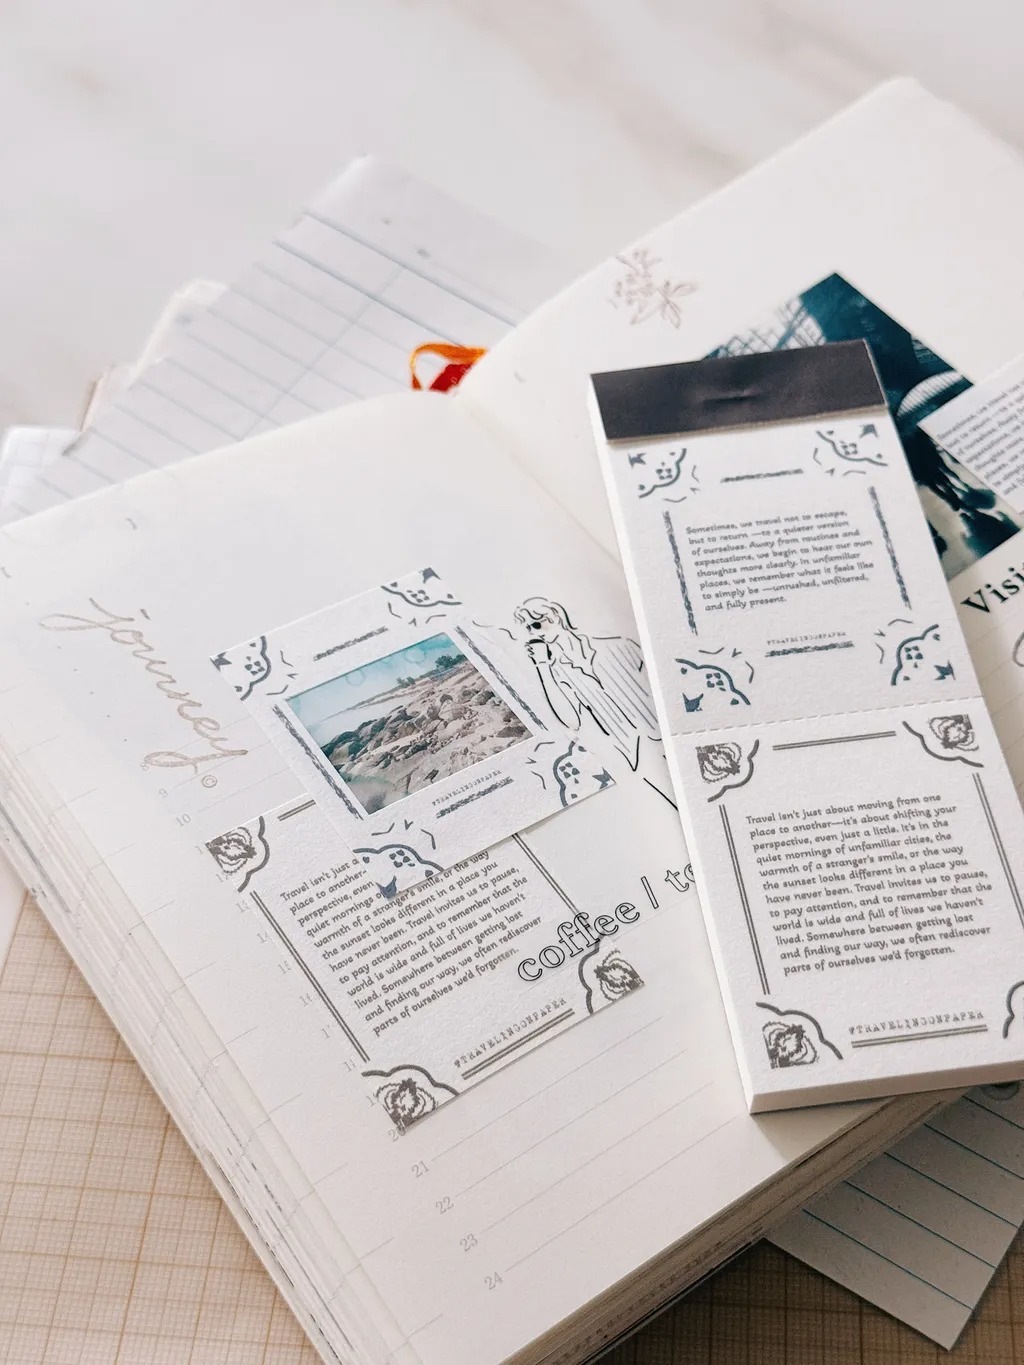 journey
9
10
#TRAVELINGONPAPER
Travel isn't just a
place to another-
perspective, even
quiet mornings o
warmth of a stranger's smile, or the way
the sunset looks different in a place you
have never been. Travel invites us to pause,
to pay attention, and to remember that the
world is wide and full of lives we haven't
lived. Somewhere between getting lost
and finding our way, we often rediscover
parts of ourselves we'd forgotten.
#TRAVELINGONPAPER
coffee / te
20
21
22
23
24
Sometimes, we travel not to escape,
but to return —to a quieter version
of ourselves. Away from routines and
expectations, we begin to hear our own
thoughts more clearly. In unfamiliar
places, we remember what it feels like
to simply be —unrushed, unfiltered,
and fully present.
#TRAVELINGONPAPER
Travel isn't just about moving from one
place to another—it's about shifting your
perspective, even just a little. It's in the
quiet mornings of unfamiliar cities, the
warmth of a stranger's smile, or the way
the sunset looks different in a place you
have never been. Travel invites us to pause,
to pay attention, and to remember that the
world is wide and full of lives we haven't
lived. Somewhere between getting lost
and finding our way, we often rediscover
parts of ourselves we'd forgotten.
#TRAVELINGONPAPER
Visi